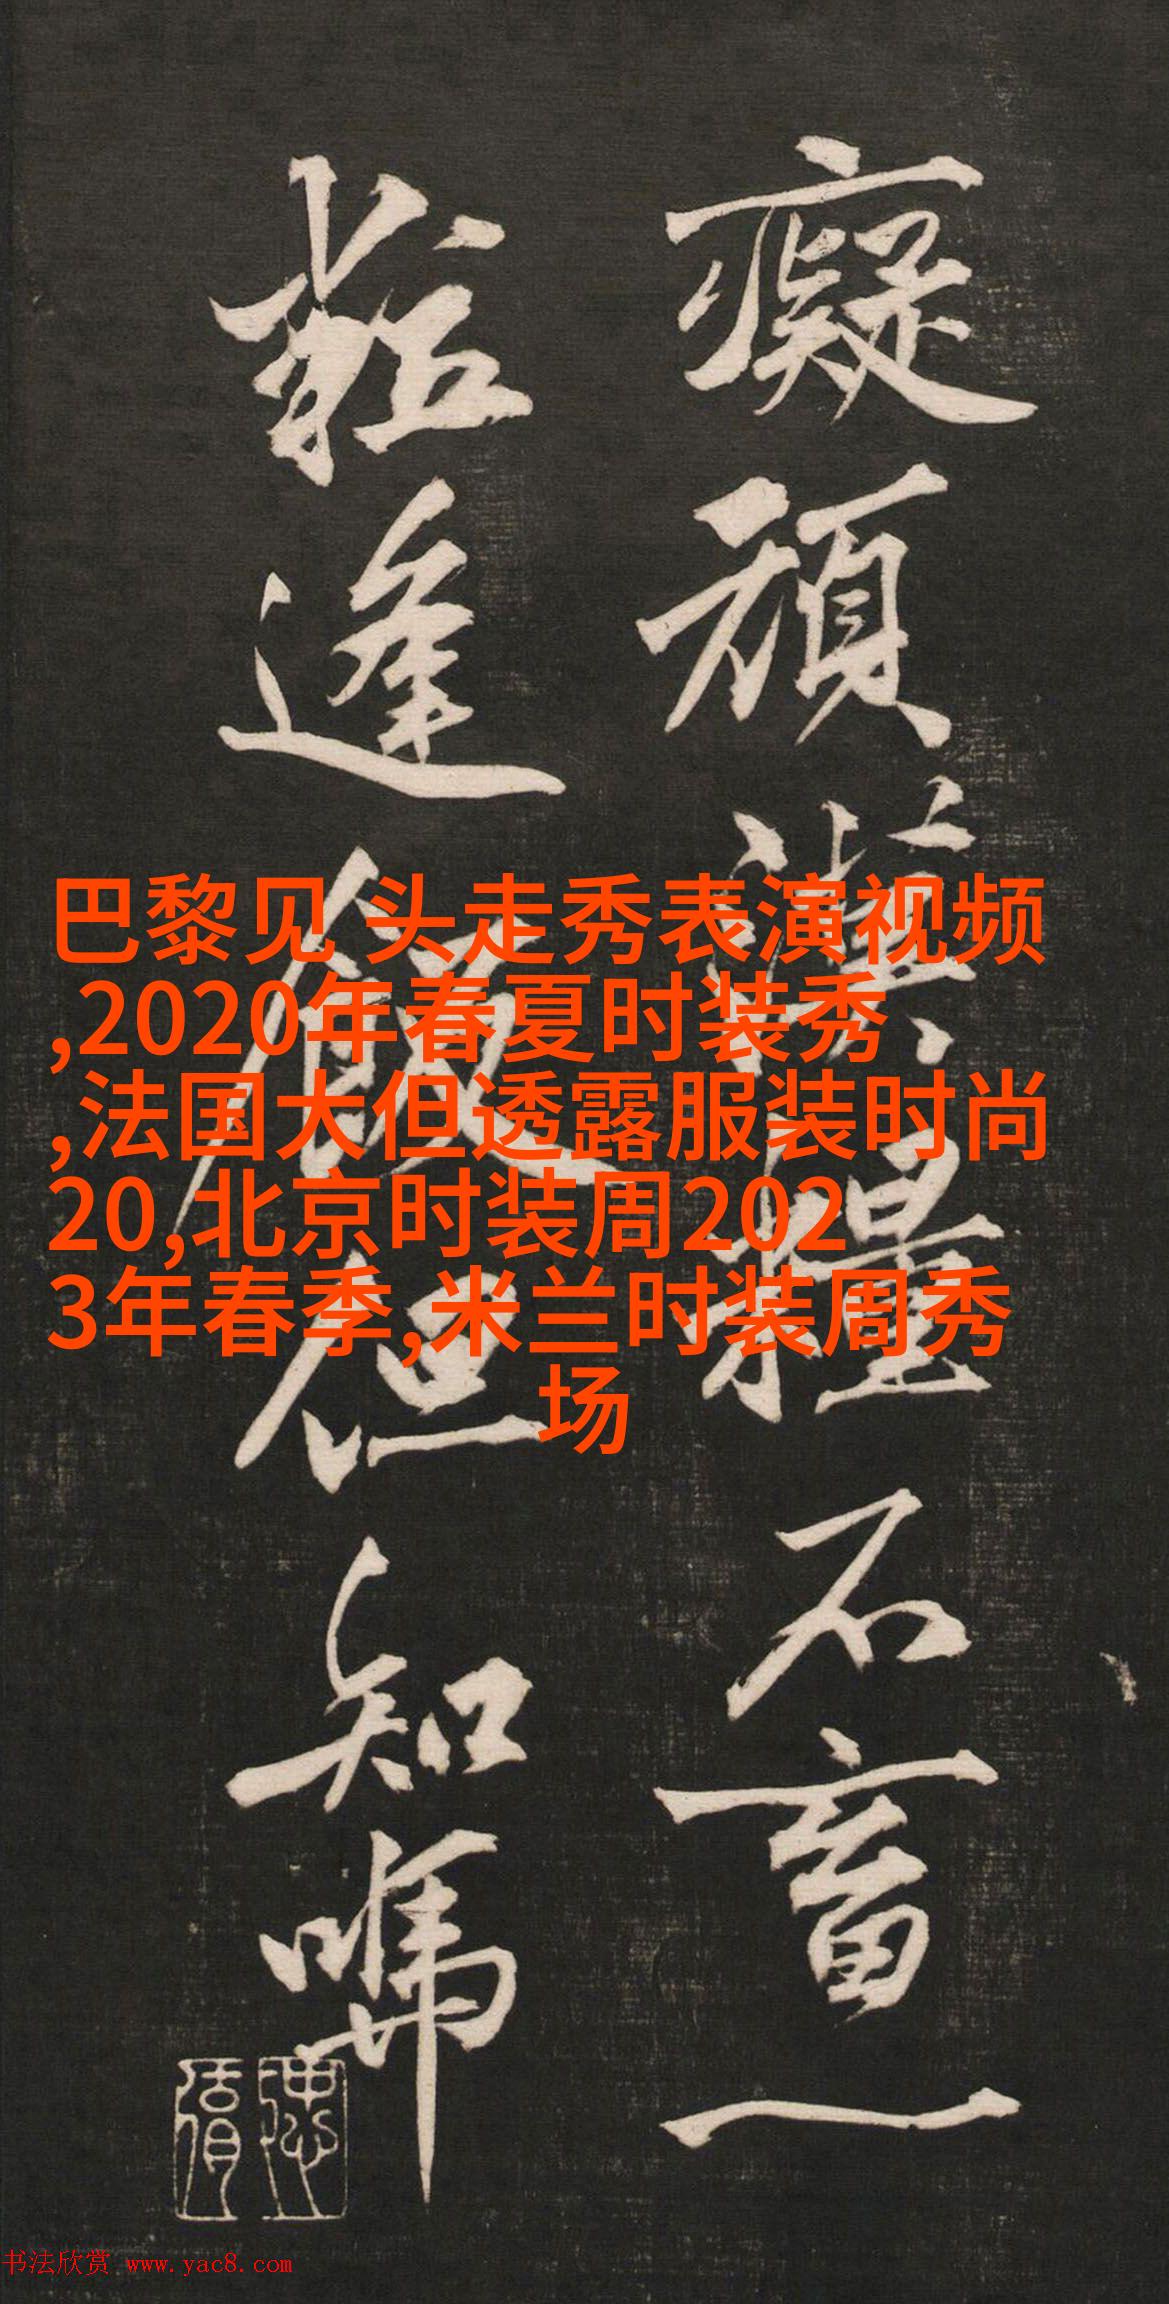 癡頑糧不畜一
粒逢飯但知
巴黎见 头走秀表演视频
,2020年春夏时装秀
,法国大但透露服装时尚
20,北京时装周202
3年春季,米兰时装周秀
场
书法欣赏 www.yac8.com